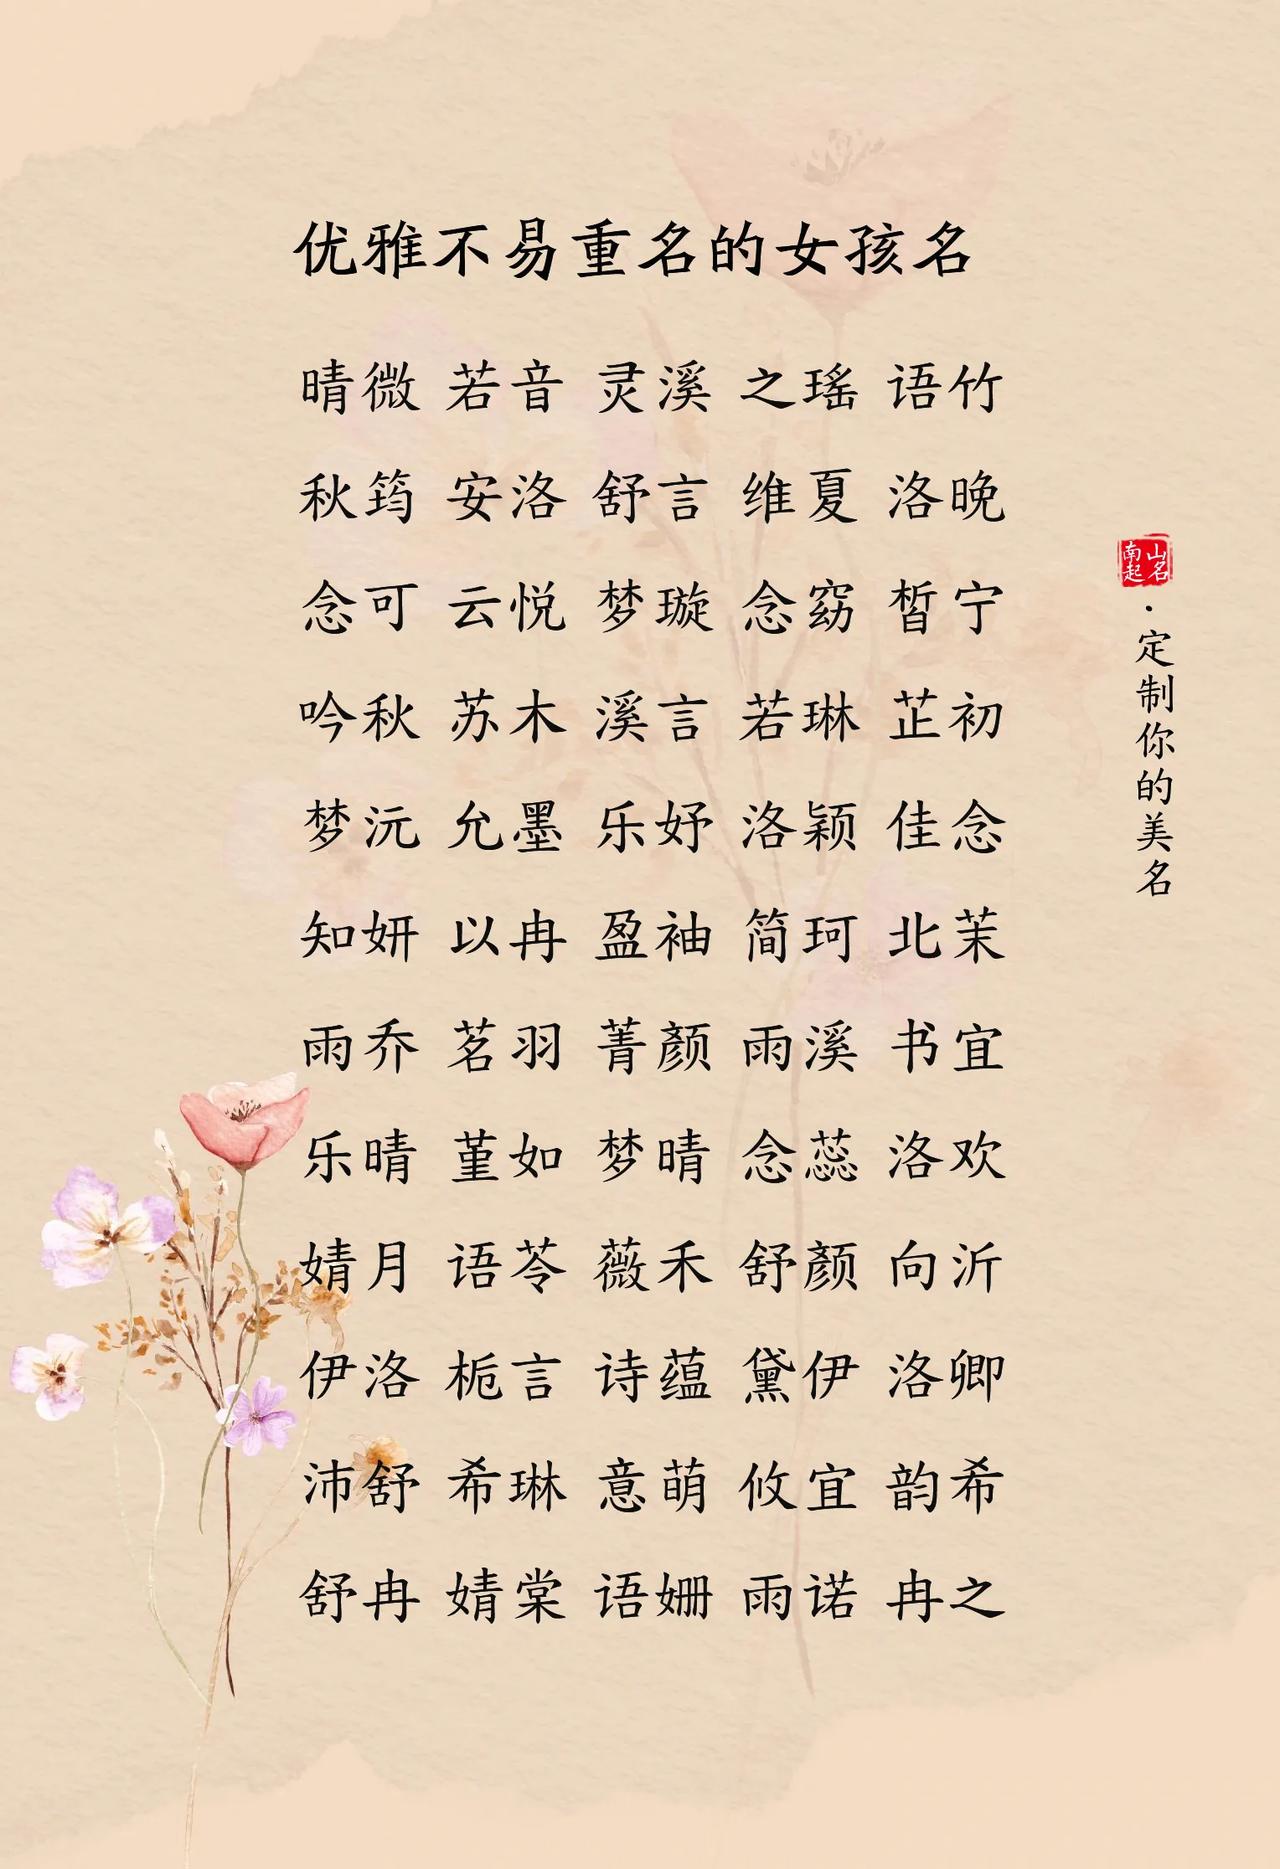 优雅不易重名的女孩名
晴微 若音 灵溪 之瑶 语竹
秋筠 安洛 舒言 维夏 洛晚
念可 云悦 梦璇 念窈 皙宁
吟秋 苏木 溪言 若琳 芷初
梦沅 允墨 乐妤 洛颖 佳念
知妍 以冉 盈袖 简珂 北茉
雨乔 茗羽 菁颜 雨溪 书宜
乐晴 堇如 梦晴 念蕊 洛欢
婧月 语苓 薇禾 舒颜 向沂
伊洛 栀言 诗蕴 黛伊 洛卿
沛舒 希琳 意萌 攸宜 韵希
舒冉 婧棠 语姗 雨诺 冉之
南山起名
·定制你的美名